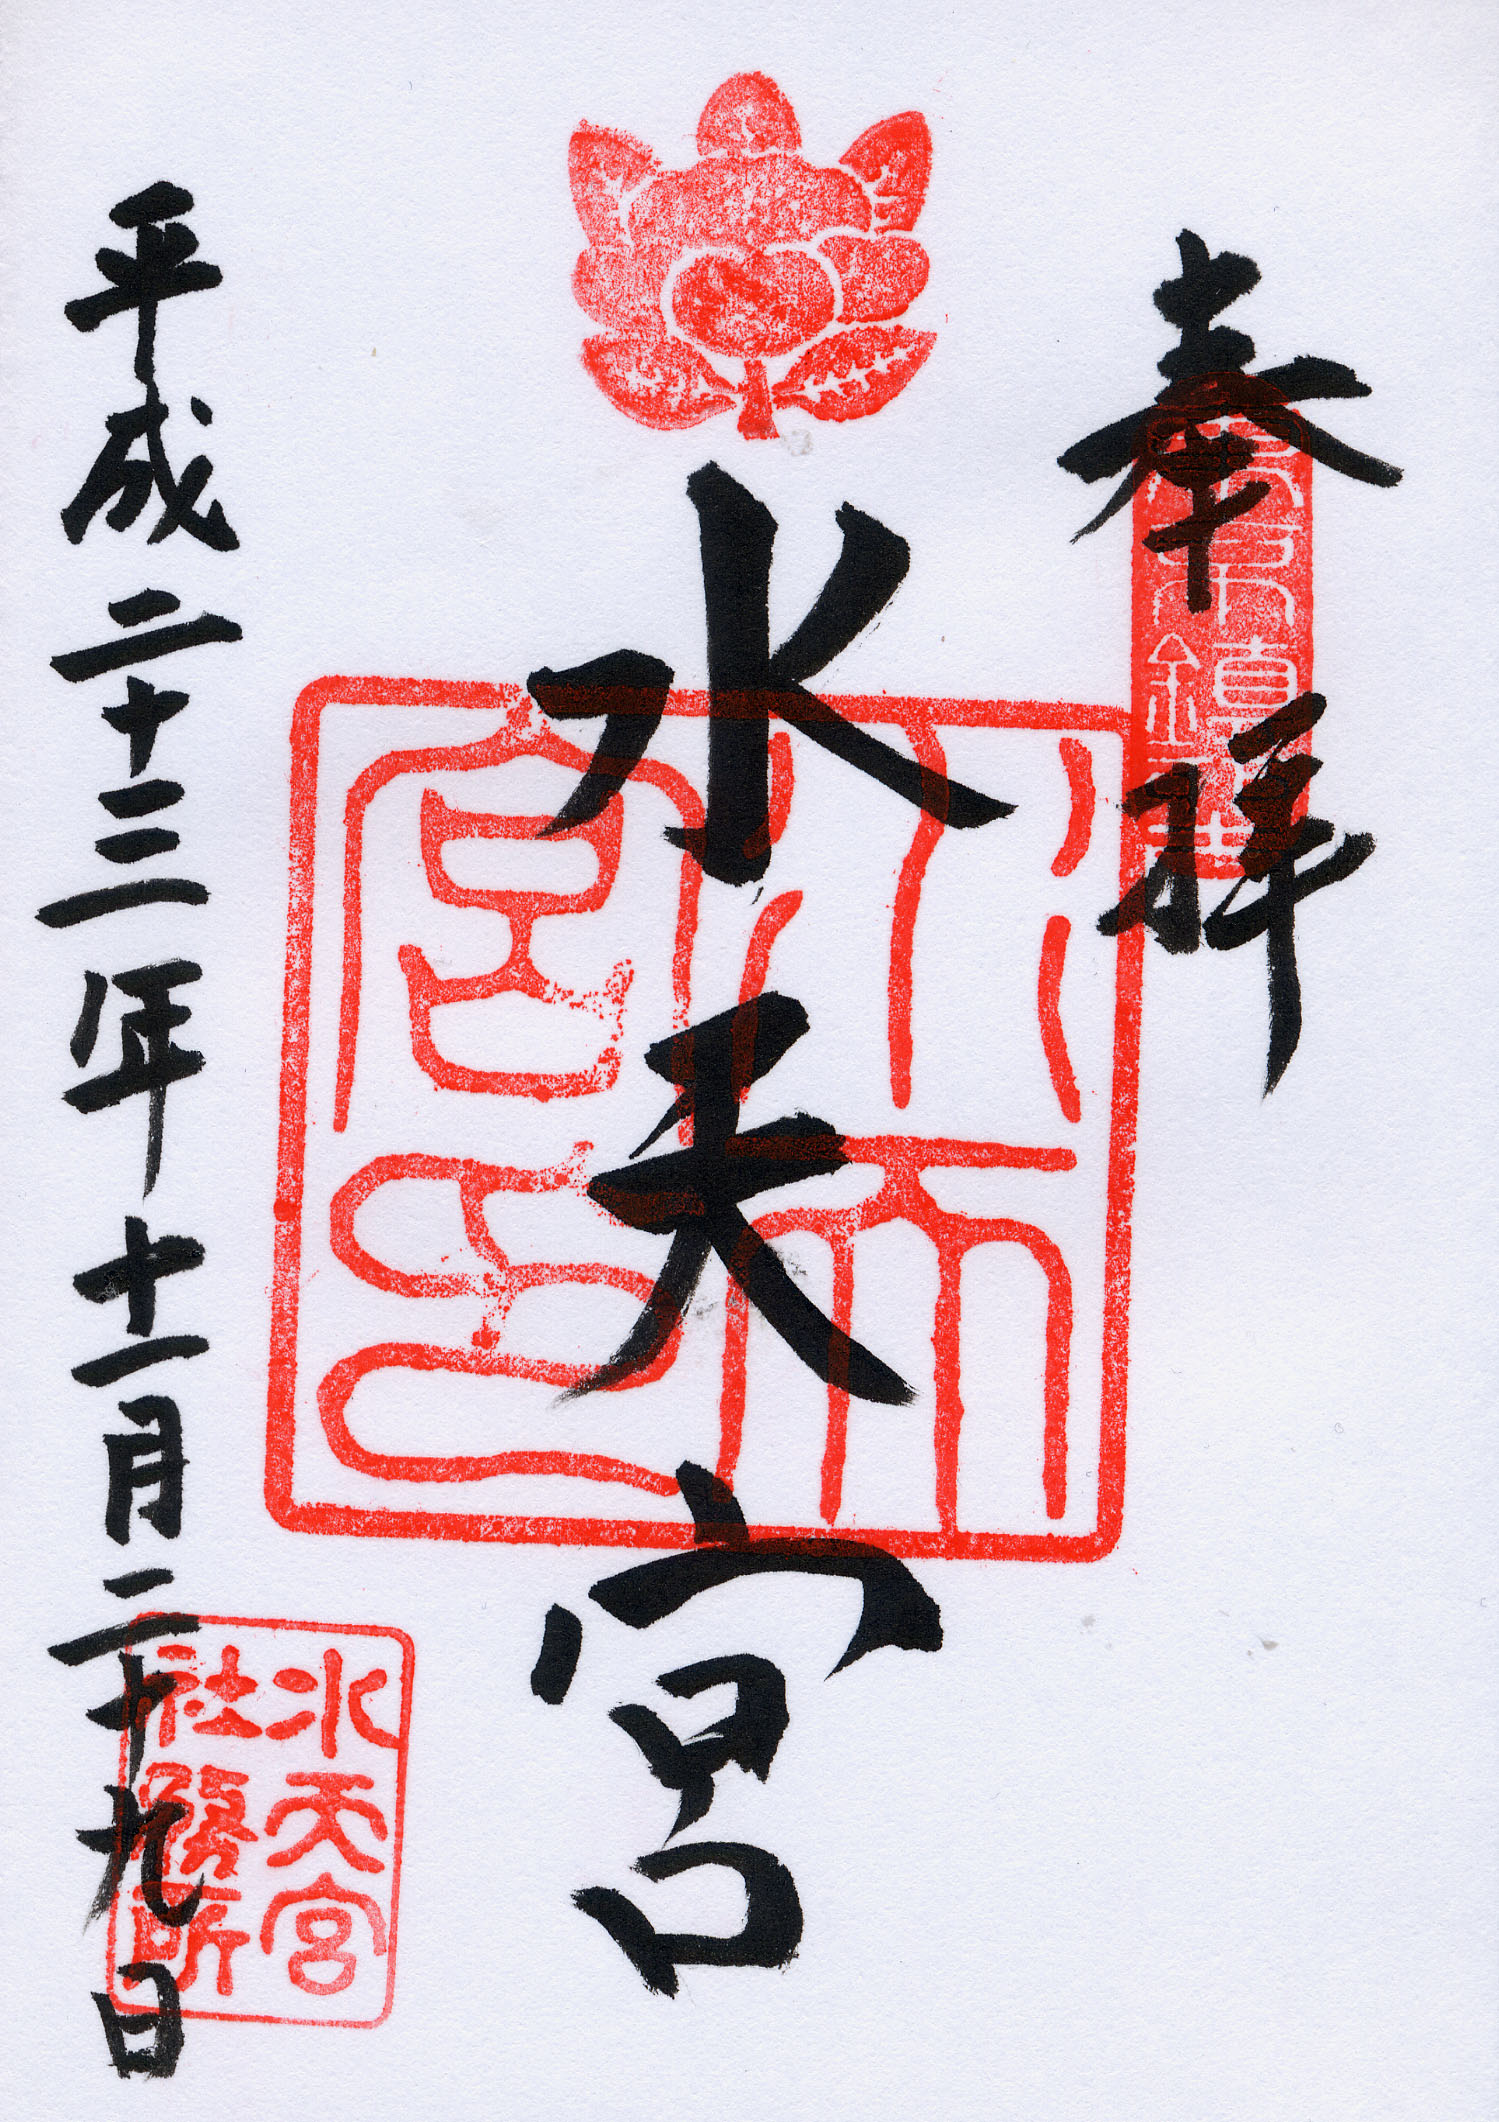 奉拝
水天宮
水天
宮印
平成二十三年十一月二十九日
水天宮
社務所